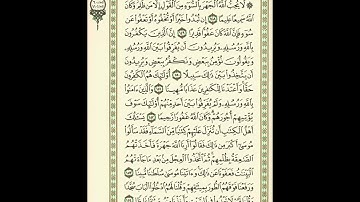 لَّا يُحِبُّ ٱللَّهُ ٱلْجَهْرَ بِٱلسُّوٓءِ مِنَ ٱلْقَوْلِ إِلَّا مَن ظُلِمَ وَكَانَ
ٱللَّهُ سَمِيعًا عَلِيمًا ١٤٨ إِن تُبْدُوا۟ خَيْرًا أَوْ تُخْفُوهُ أَوْ تَعْفُوا۟ عَن
سُوٓءٍ فَإِنَّ ٱللَّهَ كَانَ عَفُوًّا قَدِيرًا ١٤٩ إِنَّ ٱلَّذِينَ يَكْفُرُونَ
بِٱللَّهِ وَرُسُلِهِۦ وَيُرِيدُونَ أَن يُفَرِّقُوا۟ بَيْنَ ٱللَّهِ وَرُسُلِهِۦ
وَيَقُولُونَ نُؤْمِنُ بِبَعْضٍ وَنَكْفُرُ بِبَعْضٍ وَيُرِيدُونَ
أَن يَتَّخِذُوا۟ بَيْنَ ذَٰلِكَ سَبِيلًا ١٥٠ أُو۟لَٰٓئِكَ هُمُ ٱلْكَٰفِرُونَ
حَقًّا وَأَعْتَدْنَا لِلْكَٰفِرِينَ عَذَابًا مُّهِينًا ١٥١ وَٱلَّذِينَ ءَامَنُوا۟
بِٱللَّهِ وَرُسُلِهِۦ وَلَمْ يُفَرِّقُوا۟ بَيْنَ أَحَدٍ مِّنْهُمْ أُو۟لَٰٓئِكَ سَوْفَ
يُؤْتِيهِمْ أُجُورَهُمْ وَكَانَ ٱللَّهُ غَفُورًا رَّحِيمًا ١٥٢ يَسْـَٔلُكَ
أَهْلُ ٱلْكِتَٰبِ أَن تُنَزِّلَ عَلَيْهِمْ كِتَٰبًا مِّنَ ٱلسَّمَآءِ فَقَدْ سَأَلُوا۟
مُوسَىٰٓ أَكْبَرَ مِن ذَٰلِكَ فَقَالُوٓا۟ أَرِنَا ٱللَّهَ جَهْرَةً فَأَخَذَتْهُمُ
ٱلصَّٰعِقَةُ بِظُلْمِهِمْ ثُمَّ ٱتَّخَذُوا۟ ٱلْعِجْلَ مِنۢ بَعْدِ مَا جَآءَتْهُمُ
ٱلْبَيِّنَٰتُ فَعَفَوْنَا عَن ذَٰلِكَ وَءَاتَيْنَا مُوسَىٰ سُلْطَٰنًا مُّبِينًا ١٥٣
وَرَفَعْنَا فَوْقَهُمُ ٱلطُّورَ بِمِيثَٰقِهِمْ وَقُلْنَا لَهُمُ ٱدْخُلُوا۟ ٱلْبَابَ سُجَّدًا